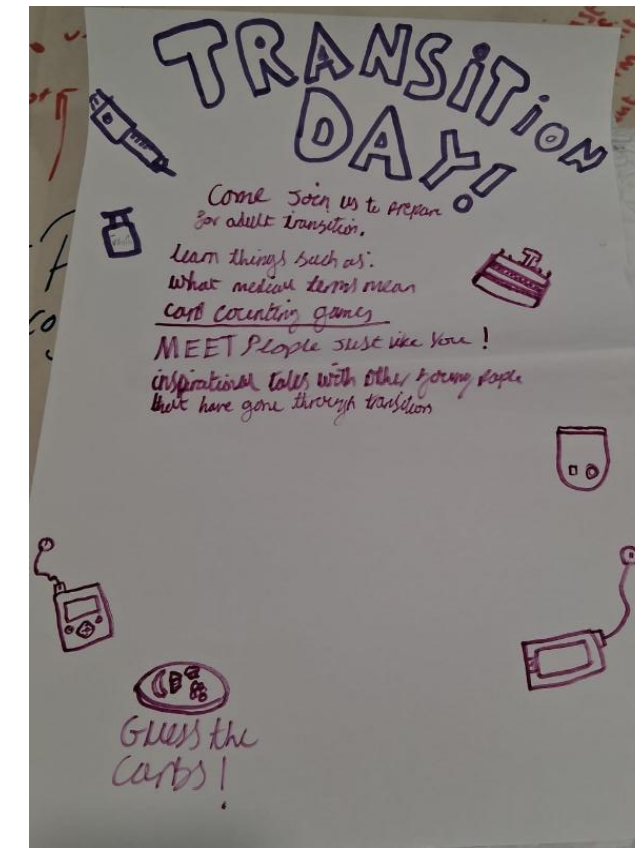 TRANSITION
DAY!
Come Join us to prepare
for adult transition.
learn things such as:
what medical terms mean
carb counting games
MEET People Just like You!
inspirational tales with other young people
that have gone through transition
Guess the
Carbs!